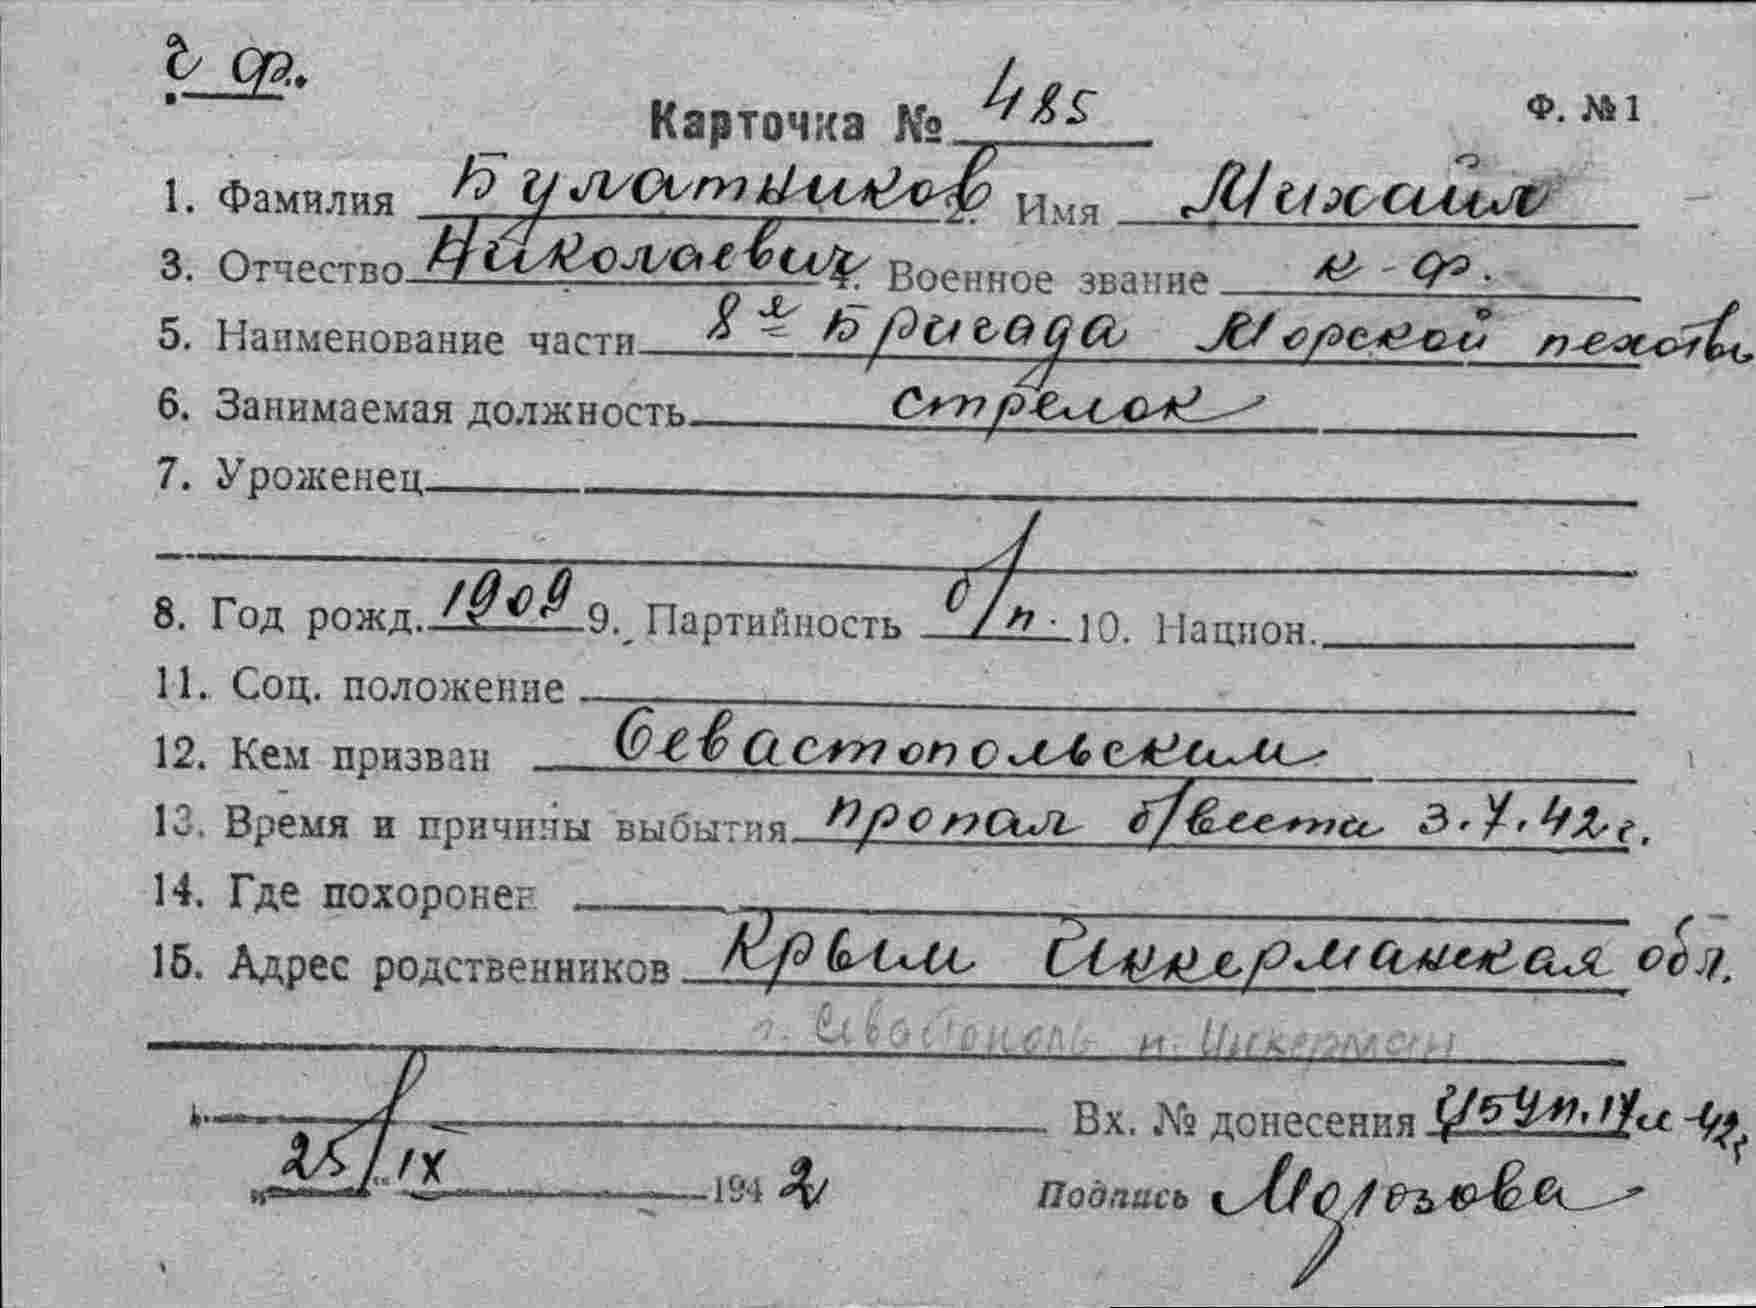 ч ф.
Карточка № 485 Ф. №1
1. Фамилия Булатников 2. Имя Михаил
3. Отчество Николаевич 4. Военное звание к-ф.
5. Наименование части 8я Бригада Морской пехоты
6. Занимаемая должность стрелок
7. Уроженец
8. Год рожд. 1909 9. Партийность б/п. 10. Национ.
11. Соц. положение
12. Кем призван Севастопольским
13. Время и причины выбытия пропал б/вести 3.7.42 г.
14. Где похоронен
15. Адрес родственников Крым Инкерманская обл.
г. Севастополь п. Инкерман
Вх. № донесения
25/IX 1942 Подпись Морозова